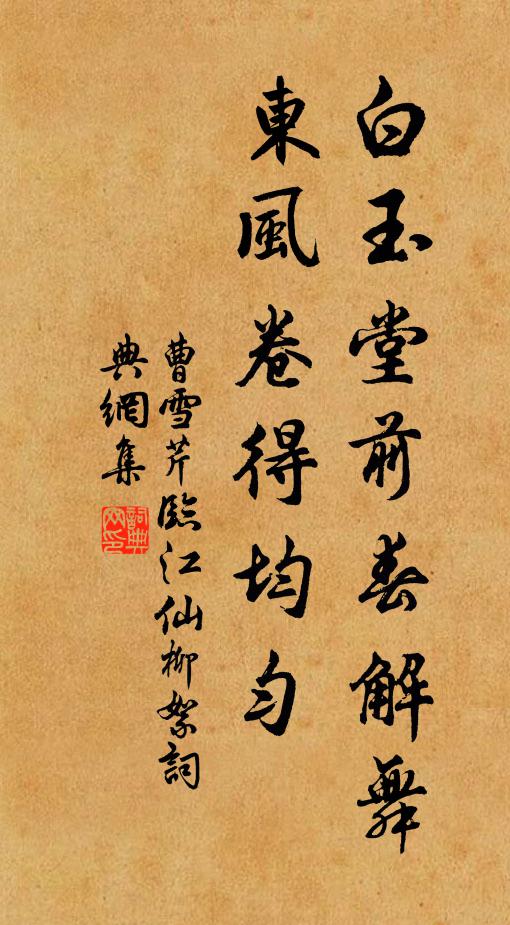 白玉堂前春解舞
東風卷得均勻
曹雪芹臨江仙柳絮詞
典網集
詞典網印